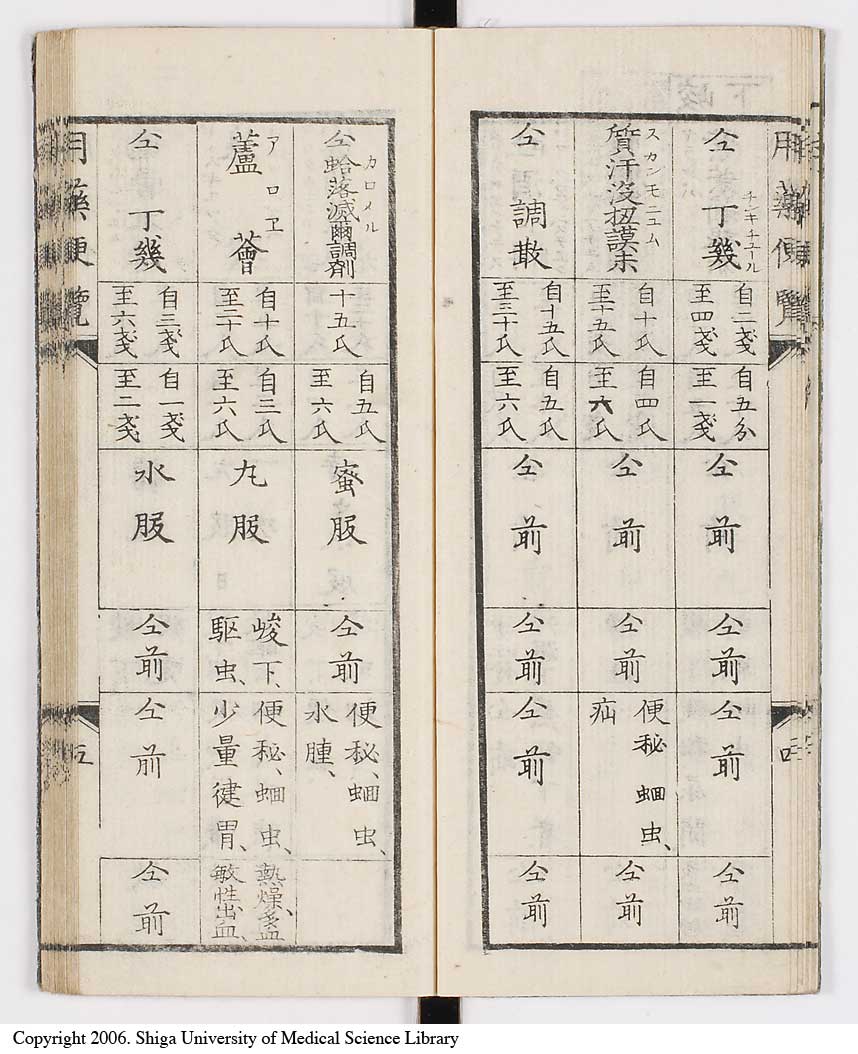 用藥便覽
四
仝丁幾
チンキチユール
自二戔
至四戔
自五分
至一戔
仝前
仝前
仝前
仝前
質汗沒扭謨末
スカンモニユム
自十氏
至十五氏
自四氏
至六氏
仝前
仝前
便秘蛔虫、
疝
仝前
仝調散
自十五氏
至三十氏
自五氏
至六氏
仝前
仝前
仝前
仝前
仝蛤落滅爾調劑
カロメル
十五氏
自五氏
至六氏
蜜服
仝前
便秘、蛔虫、
水腫、
蘆薈
アロヱ
自十氏
至二十氏
自三氏
至六氏
丸服
峻下、
駆虫、
便秘、蛔虫、
少量健胃、
熱燥、多血
敏性出血、
仝丁幾
自三戔
至六戔
自一戔
至二戔
水服
仝前
仝前
仝前
用藥便覽
五
Copyright 2006. Shiga University of Medical Science Library